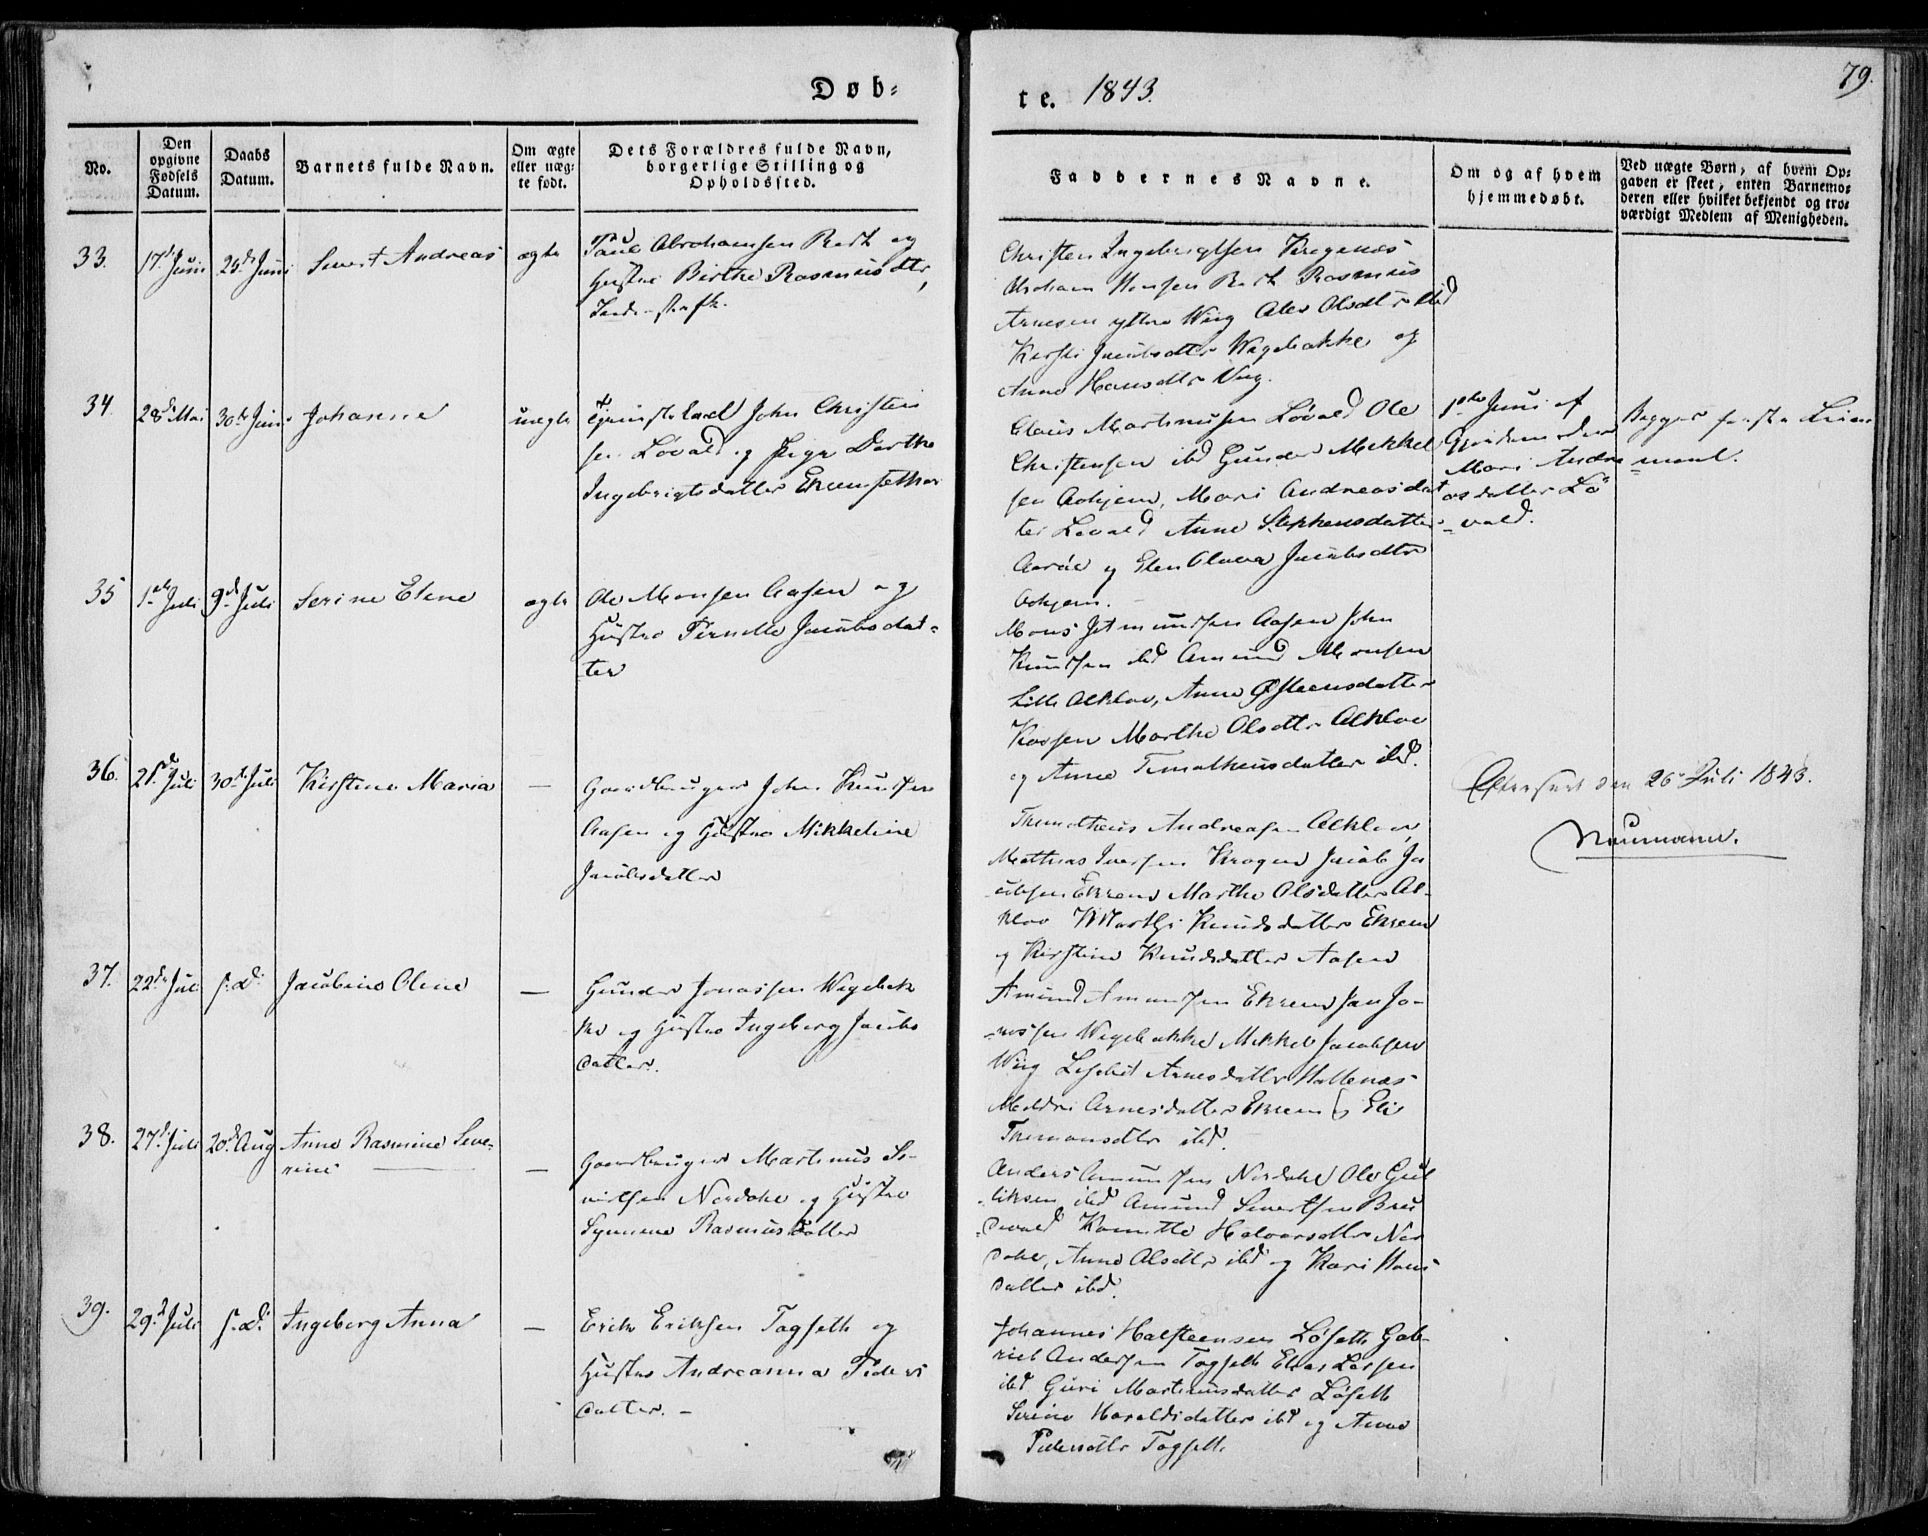 Døb-
te. 1843.
79.
No.
Den opgivne Fødsels Datum.
Daabs Datum.
Barnets fulde Navn.
Om ægte eller uægte født.
Dets Forældres fulde Navn,
borgerlige Stilling og
Opholdssted.
Faddernes Navne.
Om og af hvem
hjemmedøbt.
Ved uægte Børn, af hvem Op-
gaven er skeet, enten Barnemo-
deren eller hvilket bekjendt og tro-
værdigt Medlem af Menigheden.
33. 17d Juni 25d Juni Sivert Andreas ægte
Paul Abrahamsen og
Hustro Birthe Rasmusdtr,
Christen Ingebrigtsen Kragenæs
Abraham Hansen Rasmus
Arnesen ytre Wiig Olsdtr ibd
Kirsti Jacobsdtr Wagebakke og
Anne Hansdtr Viig.
34. 28d Mai 30te Juni Johanne uægte
John Christen
sen Løvold og Pige Dorthe
Ingebrigtsdatter Ekremsether
Claus Martinusen Løvold Ole
Christensen ibd Gunder Mikkel
sen Aahjem, Mari Andreasdat
ter Løvold Anne Stephensdatter
Aarøe og Elen Olava Jacobsdtr
Aahjem.
1ste Juni af
Gjordemoder
Mari Andre
asdatter Lø
-vold.
Begges første Leier
-maal.
35 1ste Juli 9d Juli Serine Elene ægte
Ole Monsen Aasen og
Hustro Pernille Jacobsdat-
ter
Mons Jetmundsen Aasen John
Knudsen ibd Amund Monsen
Lille Alklov, Anne Østensdatter
Marthe Olsdtr Alklov
og Anne Timotheusdatter ibd.
36. 21d Juli 30te Juli Kirstine Maria —
Gaardbruger John Knudsen
Aasen og Hustro Mikkeline
Jacobsdatter
Themotheus Andreasen Alklov,
Mathias Iversen Kragen Jacob Ja
cobsen Ekrem Marthe Olsdatter Al-
klov Knudsdatter Ekrem
og Kirstine Knudsdatter Aasen
Efterseet den 26 Juli 1843.
Neumann.
37. 22d Juli s. d. Jacobine Oline —
Gunder Jonassen Wagebak
ke og Hustro Ingeborg Jacobs
datter.
Amund Amundsen Ekrem Jan Jo-
nassen Wagebakke Mikkel Jacobsen
Wiig Lisebet Arnesdatter
Mildri Arnesdatter Ekrem og Eli
Themansdtr ibd.
38. 27d Juli 20d Aug Anne Rasmine Seve-
rine —
Gaardbruger Martinus
Nordahl og Hustro
Synneve Rasmusdatter
Anders Amundsen Nordahl Ole Gul
liksen ibd Amund Sivertsen Brus
dvold Halvorsdtr Nor
dahl, Anne Olsdtr ibd og Kari Hans
datter ibd.
39. 29d Juli s. d. Ingeborg Anna —
Erik Eriksen Tagseth og
Hustro Andreanna Peders
datter. —
Johannes Halsteensen Løseth Gab-
riel Andersen Tagseth Elias Larsen
ibd Guri Martinusdatter Løseth
Serine Haraldsdatter ibd og Anne
Pedersdtr Tagseth